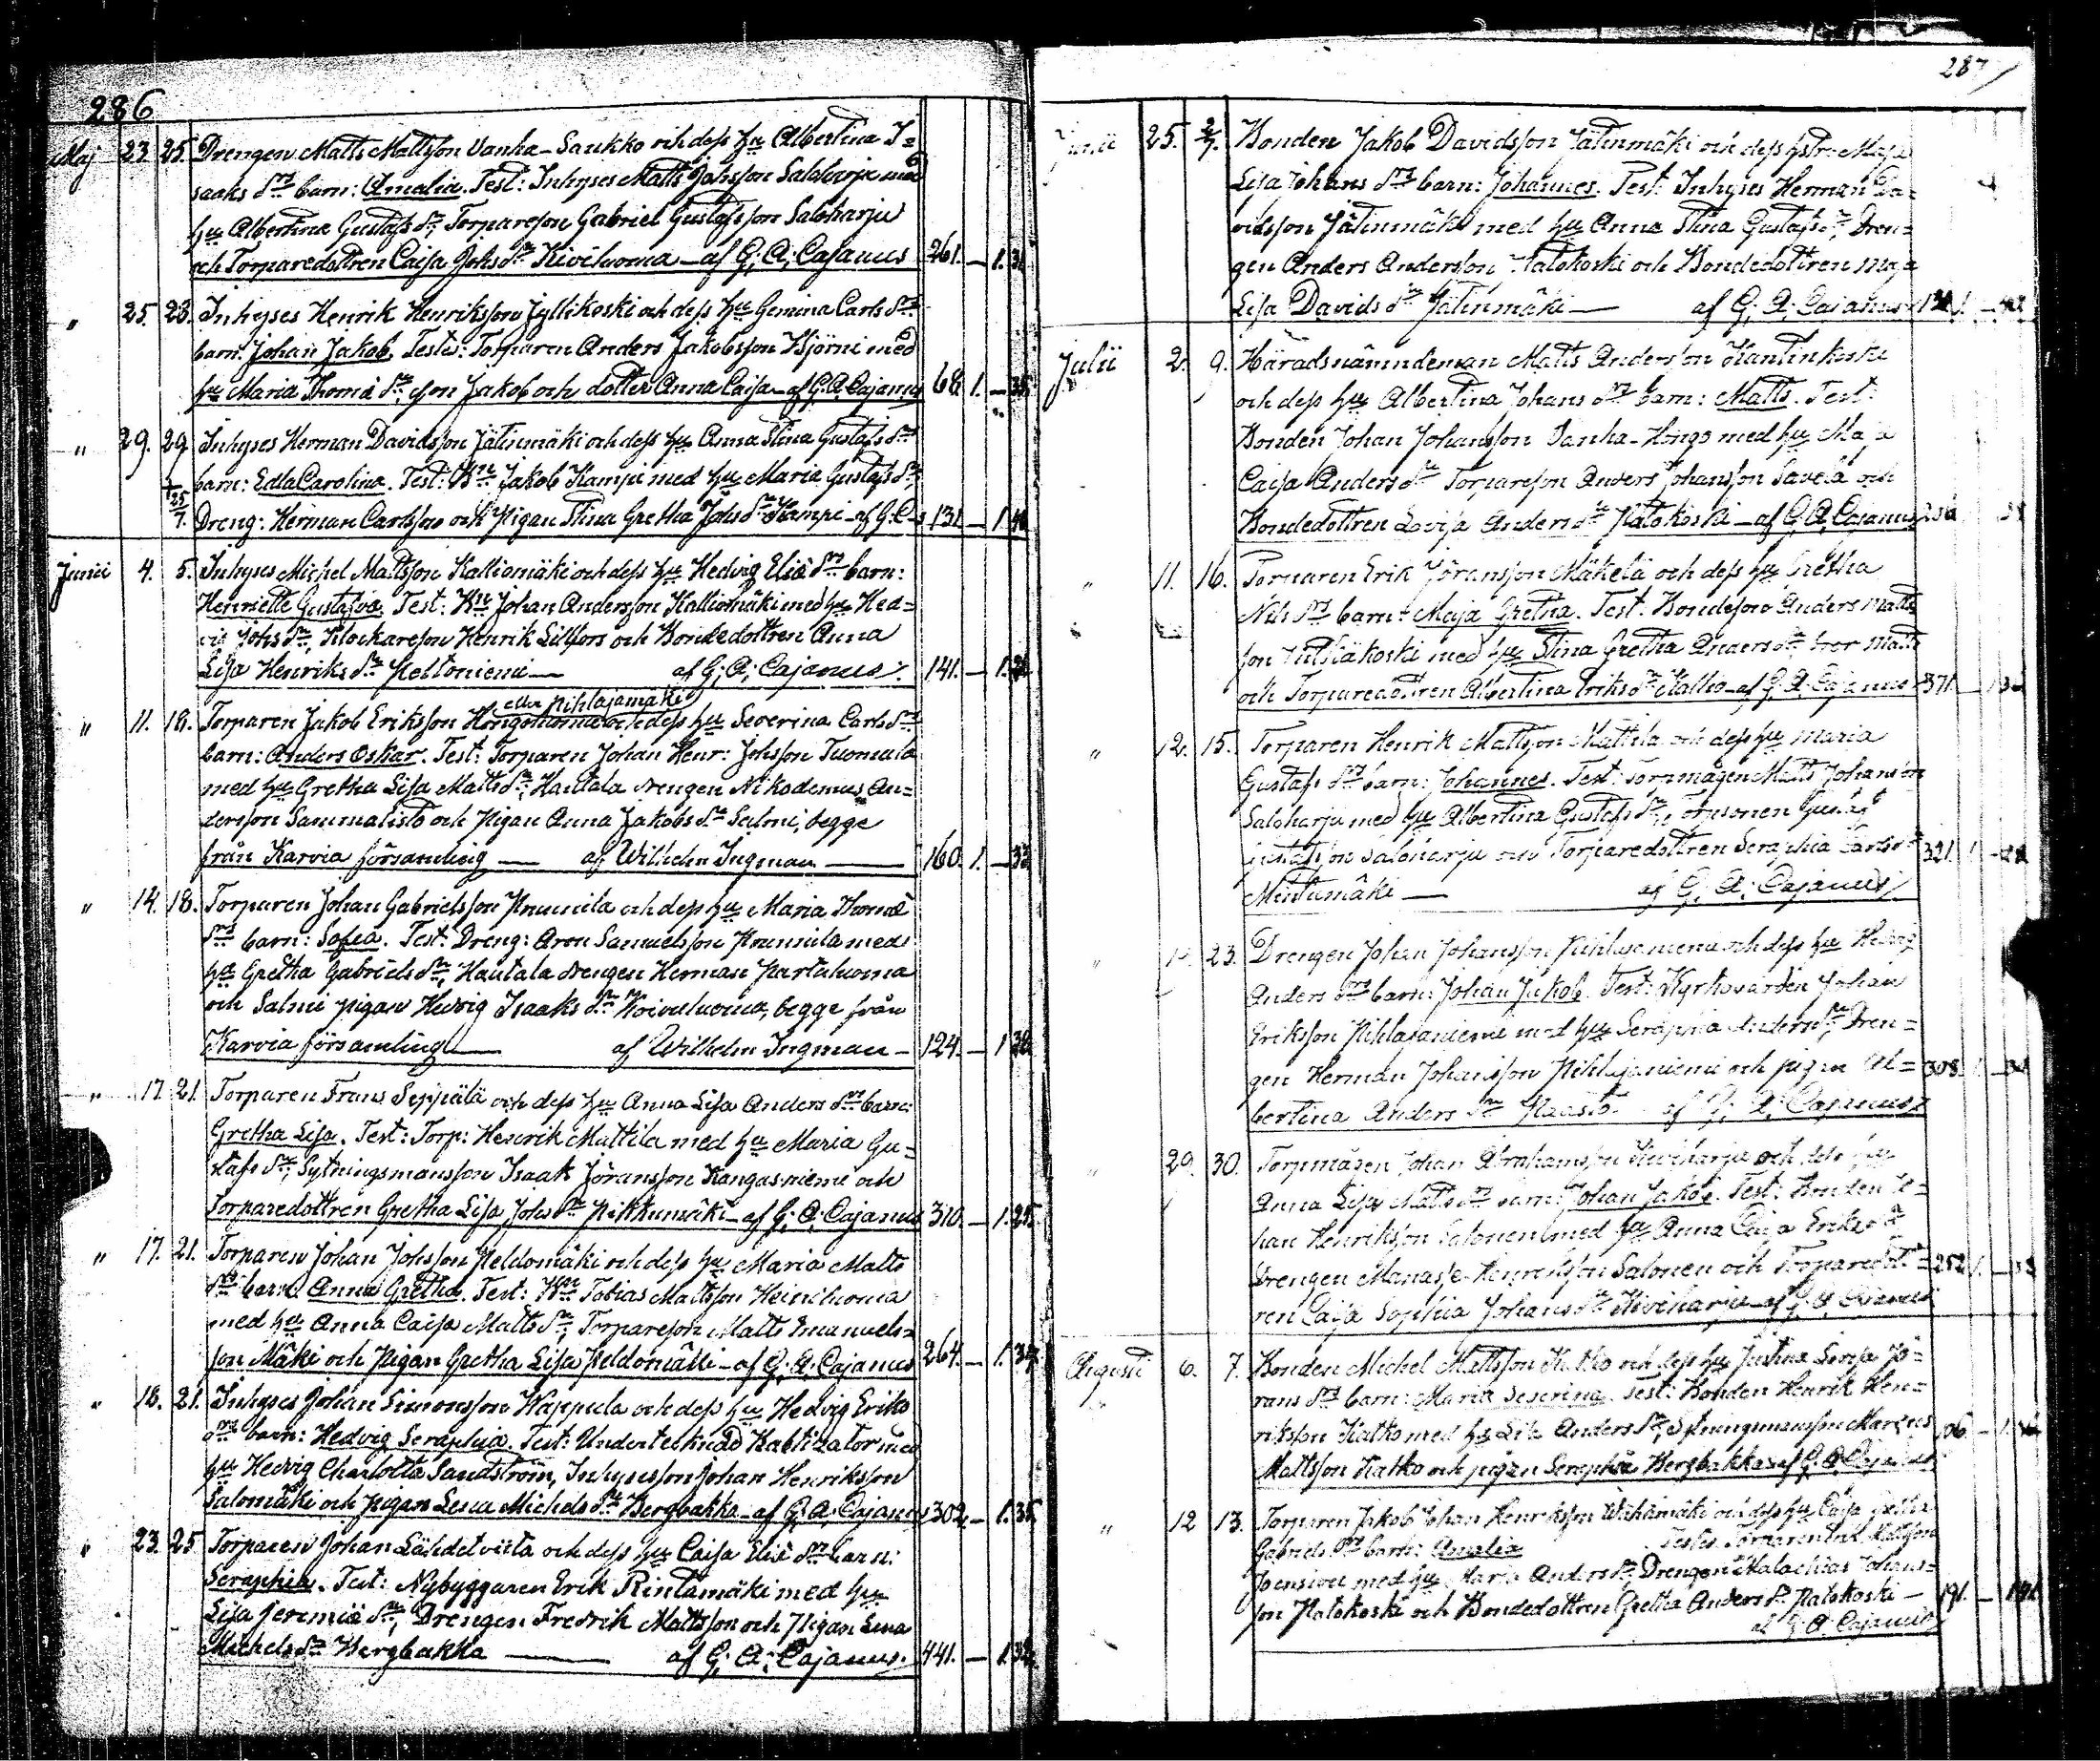 286
Maj 23. 25. Drengen Matts Mattsson Vanha-Saukko och dess hu Albertina I=
saaks dr barn: Amalia. Test: Inhyses Matts Johsson Saloharju med
hu Albertina Gustafs dr Torpareson Gabriel Gustafsson Saloharju
och Torparedottren Caisa Johs dr Kiviluoma — af G: A: Cajanus 261. — 1.
" 25. 28. Inhyses Henrik Henriksson Jyllikoski och dess hu Gemina Carls dr
barn: Johan Jakob. Testes: Torparen Anders Jakobsson Björni med
hu Maria Thomæ dr, son Jakob och dotter Anna Caisa — af G. A. Cajanus 68. 1. —
" 29. 29. Inhyses Herman Davidsson Jätinmäki och dess hu Anna Stina Gustafs dr
barn: Edla Carolina. Test: Bn Jakob Kampi med hu Maria Gustafs dr
† 25/7. Dreng: Herman Carlsson och Pigan Stina Gretha Johs dr Kampi — af G. C. 131. — 1.
Junii 4. 5. Inhyses Michel Mattsson Kalliomäki och dess hu Hedvig Eliæ dr barn:
Henriette Gustafva. Test: Bn Johan Andersson Kalliomäki med hu Hed=
vig Johs dr, Klockareson Henrik Lilfors och Bondedottren Anna
Lisa Henriks dr Peltoniemi — af G: A: Cajanus. 141. — 1.
eller Pihlajamäki
" 11. 18. Torparen Jakob Eriksson Hongoluoma och dess hu Severina Carls dr
barn: Anders Oskar. Test: Torparen Johan Henr: Johsson Tuomula
med hu Gretha Lisa Matts dr, Hautala drengen Nikodemus An=
dersson Sammalisto och Pigan Anna Jakobs dr Salmi, begge
från Karvia församling — af Wilhelm Ingman — 160. 1. — 33.
" 14. 18. Torparen Johan Gabrielsson Krunnila och dess hu Maria Thomæ
dr barn: Sofia. Test: Dreng: Aron Samuelsson Krunnila med
hu Gretha Gabriels dr, Hautala drengen Herman Partaluoma
och Salmi pigan Hedvig Isaaks dr Koivuluoma, begge från
Karvia församling — af Wilhelm Ingman — 124. — 1
" 17. 21. Torparen Frans Seppälä och dess hu Anna Lisa Anders dr barn:
Gretha Lisa. Test: Torp: Henrik Mattila med hu Maria Gu=
stafs dr, Sytningsmansson Isaak Jöransson Kangasniemi och
Torparedottren Gretha Lisa Johs dr Pikkumäki — af G. A. Cajanus 310. — 1.25.
" 17. 21. Torparen Johan Johsson Peldomäki och dess hu Maria Matts
dr barn: Anna Gretha. Test: Bn Tobias Mattsson Heiniluoma
med hu Anna Caisa Matts dr, Torpareson Matts Emanuels=
son Mäki och Pigan Gretha Lisa Peldomäki — af G. A. Cajanus 264. — 1.34.
" 18. 21. Inhyses Johan Simonsson Wappula och dess hu Hedvig Eriks
dr barn: Hedvig Seraphia. Test: Undertecknad Baptizator med
hu Hedvig Charlotta Sandström, Inhysesson Johan Henriksson
Salomäki och Pigan Lena Michels dr Bergbakka — af G. A. Cajanus 302. — 1.35.
" 23. 25 Torparen Johan Lähdetviita och dess hu Caisa Eliæ dr barn:
Seraphia. Test: Nybyggaren Erik Rintamäki med hu
Lisa Jeremiæ dr, Drengen Fredrik Mattsson och Pigan Lena
Michels dr Bergbakka — af G: A: Cajanus. 441. — 1.32.
287
Junii 25. 2/7. Bonden Jakob Davidsson Jätinmäki och dess hstr: Maja
Lisa Johans dr barn: Johannes. Test: Inhyses Herman Da=
vidsson Jätinmäki med hu Anna Stina Gustafs dr, Dren=
gen Anders Andersson Patokoski och Bondedottren Maja
Lisa Davids dr Jätinmäki — af G. A. Cajanus
Julii 2. 9. Häradsnämndeman Matts Andersson Kantinkoski
och dess hu Albertina Johans dr barn: Matts. Test:
Bonden Johan Johansson Vanha-Hongo med hu Maja
Caisa Anders dr Torpareson Anders Johansson Savela och
Bondedottren Lovisa Anders dr Patokoski — af G. A. Cajanus
" 11. 16. Torparen Erik Jöransson Mäkelä och dess hu Gretha
Nils dr barn: Maja Gretha. Test: Bondeson Anders Matts
son med hu Stina Gretha Anders dr bror Matts
och Torparedottren Albertina Eriks dr Katko — af G. A. Cajanus 371.
" 12. 15. Torparen Henrik Mattsson Mattila och dess hu Maria
Gustafs dr barn: Johannes. Test: Torpmågen Matts Johansson
Saloharju med hu Albertina Gustafs dr, Torpsonen Gustaf
Gustafsson Saloharju och Torparedottren Seraphia Carls dr 321.
Mintumäki — af G. A. Cajanus
" 23. Drengen Johan Johansson Pihlajaniemi och dess hu Hedvig
Anders dr barn: Johan Jakob. Test: Kyrkovärden Johan
Eriksson Pihlajaniemi med hu Seraphia Anders dr, Dren=
gen Herman Johansson Pihlajaniemi och pigan Al= 308.
bertina Anders dr Haasto — af G. A. Cajanus
" 29. 30. Torpmågen Johan Abrahamsson Kiviharju och dess hu
Anna Lisa Matts dr barn: Johan Jakob. Test: Bonden Jo=
han Henriksson Salonen med hu Anna Caisa Eriks dr
Drengen Manasse Henriksson Salonen och Torparedott= 252.
ren Caisa Sophia Johans dr Kiviharju — af G. A. Cajanus
Augusti 6. 7. Bonden Michel Mattsson Katko och dess hu Justina Lovisa Jö=
rans dr barn: Maria Severina. Test: Bonden Henrik Hen=
riksson Katko med hu Anders dr, Sytningsmansson Marcus
Mattsson Katko och pigan Seraphia Bergbakka af G. A. Cajanus
" 12 13. Torparen Jakob Johan Henriksson Wähämäki och dess hu Caisa
Gabriels dr barn: Amalia Testes: Torparen Mattsson
med hu Maria Anders dr, Drengen Malachias Johans=
son Patokoski och Bondedottren Gretha Anders dr Patokoski — 191.
af G. A. Cajanus